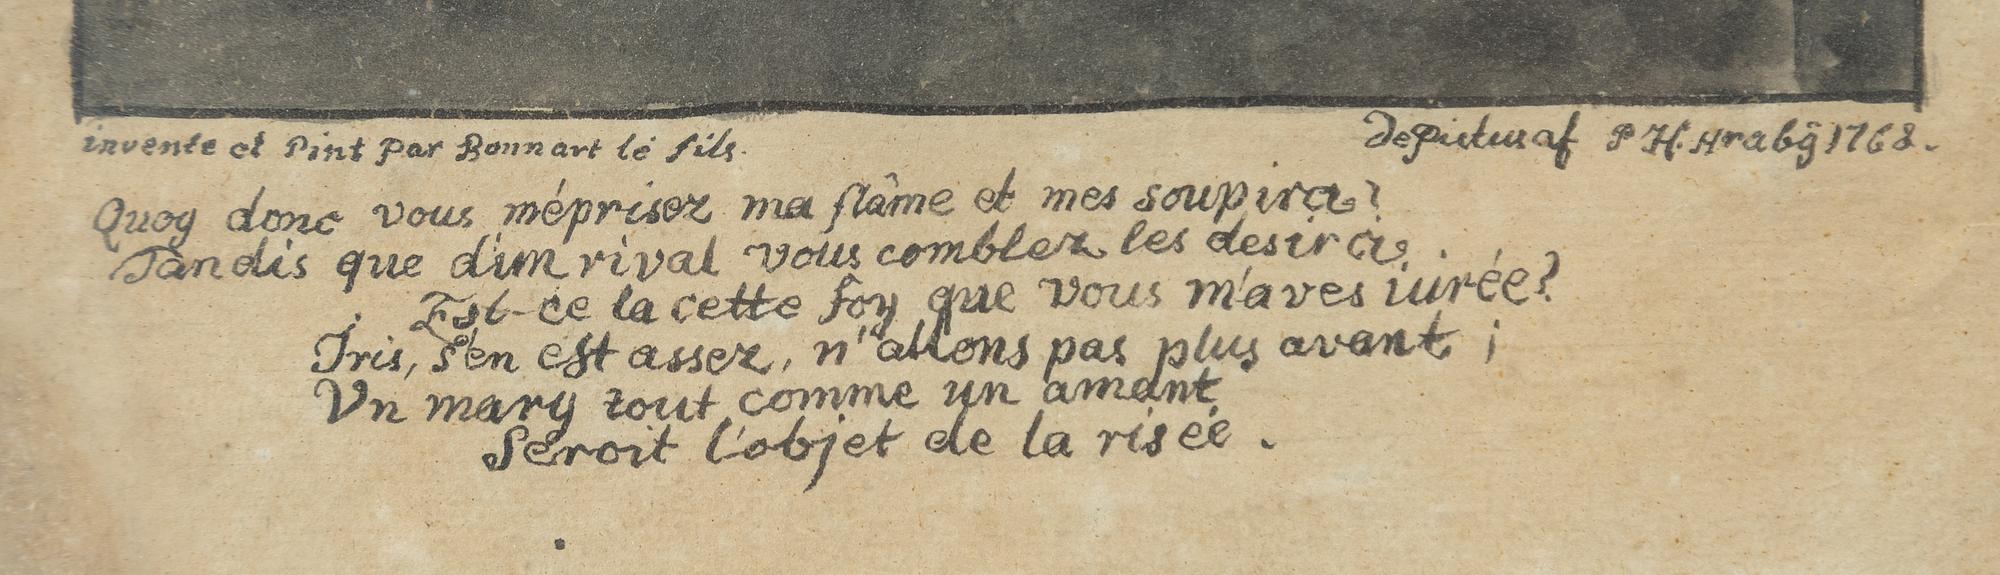 invente et Pint Par Bonnart le fils.
depictus af P H. Hrabÿ 1768.
Quoy donc vous méprisez ma flâme et mes soupirs?
Tandis que d'un rival vous comblez les desirs.
Est-ce la cette foy que vous m'aves iurée?
Iris, s'en est assez, n'allons pas plus avant ;
Vn mary tout comme un amant,
Seroit l'objet de la risée.